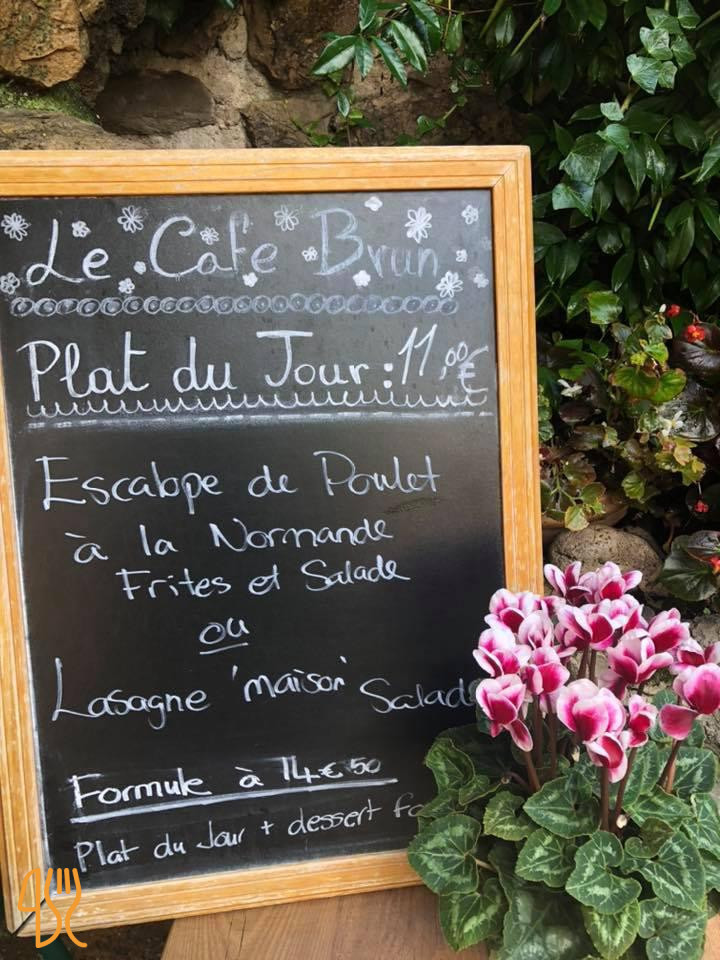 Le Café Brun
Plat du Jour : 11,00€
Escalope de Poulet
à la Normande
Frites et Salade
ou
Lasagne 'maison' Salade
Formule à 14€50
Plat du Jour + dessert